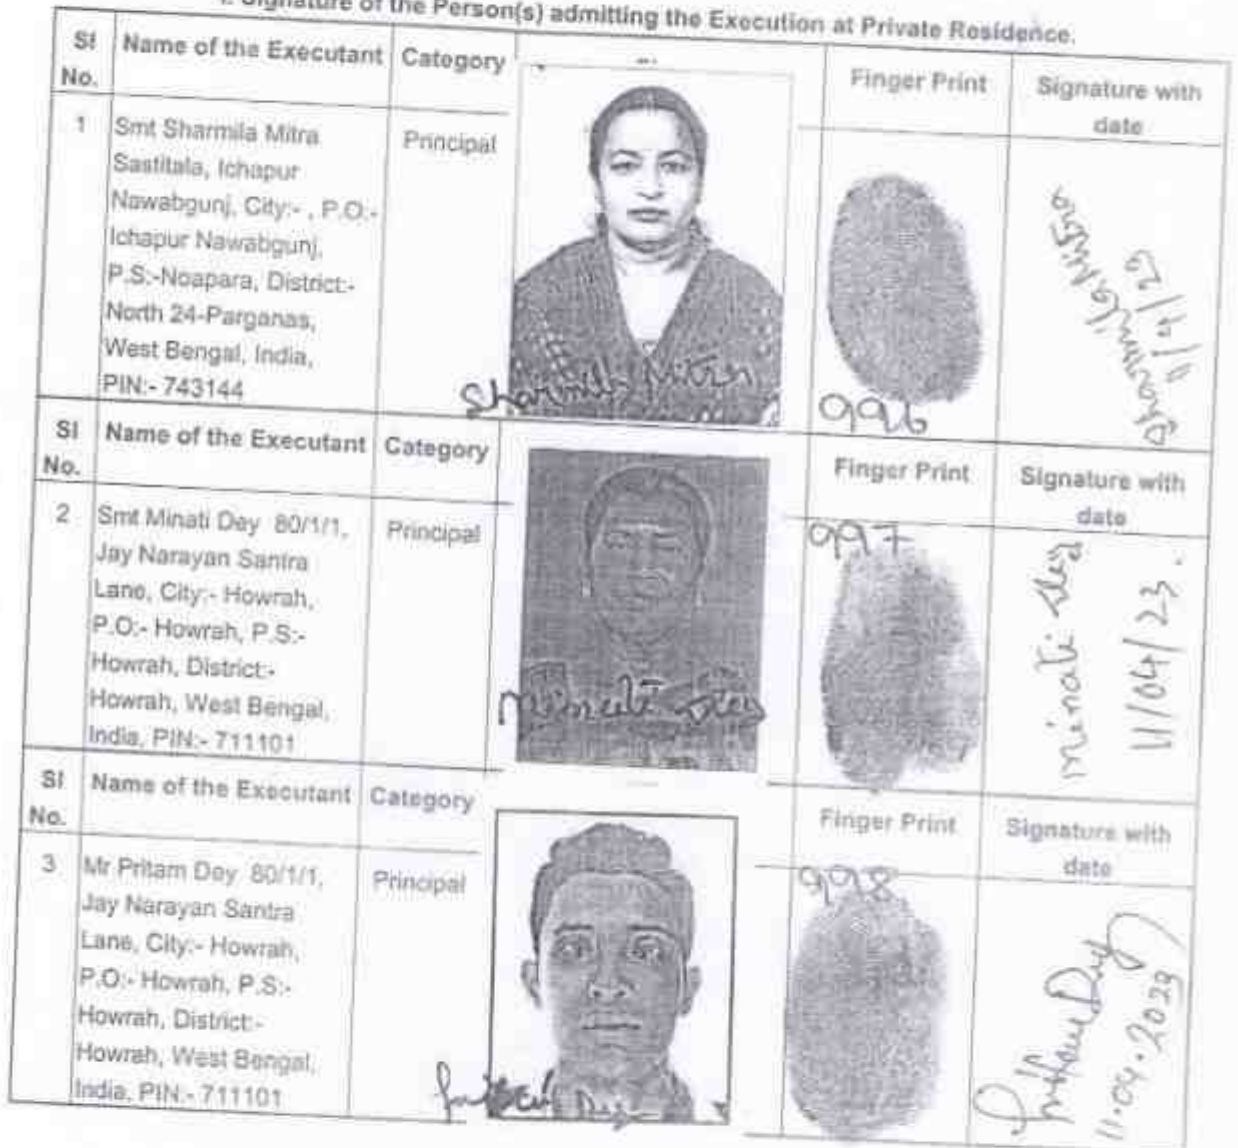 I. Signature of the Person(s) admitting the Execution at Private Residence.
Sl No. Name of the Executant Category Finger Print Signature with date
1 Smt Sharmila Mitra Principal
Sastitala, Ichapur
Nawabgunj, City:- , P.O:-
Ichapur Nawabgunj,
P.S:-Noapara, District:-
North 24-Parganas,
West Bengal, India,
PIN:- 743144
Sharmila Mitra
996
Sharmila Mitra
11/4/23
Sl No. Name of the Executant Category Finger Print Signature with date
2 Smt Minati Dey 80/1/1, Principal
Jay Narayan Santra
Lane, City:- Howrah,
P.O:- Howrah, P.S:-
Howrah, District:-
Howrah, West Bengal,
India, PIN:- 711101
Minati Dey
997
Minati Dey
11/04/23.
Sl No. Name of the Executant Category Finger Print Signature with date
3 Mr Pritam Dey 80/1/1, Principal
Jay Narayan Santra
Lane, City:- Howrah,
P.O:- Howrah, P.S:-
Howrah, District:-
Howrah, West Bengal,
India, PIN:- 711101
Pritam Dey
998
Pritam Dey
11.04.2023